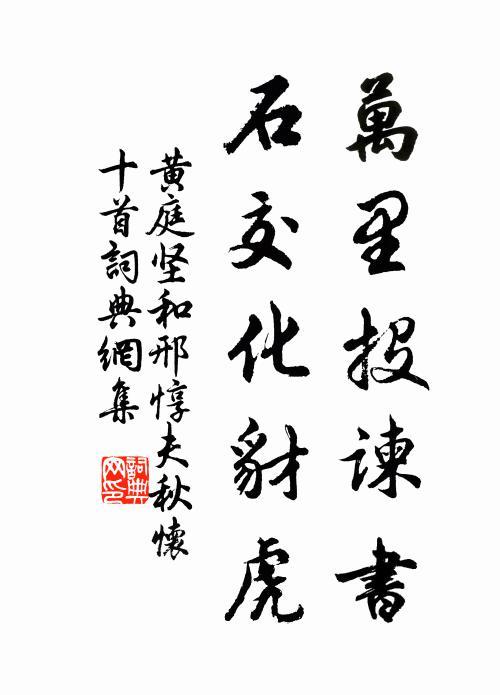 萬里投諫書
石交化豺虎
黄庭坚和邢惇夫秋懷
十首詞典網集
詞典
网印